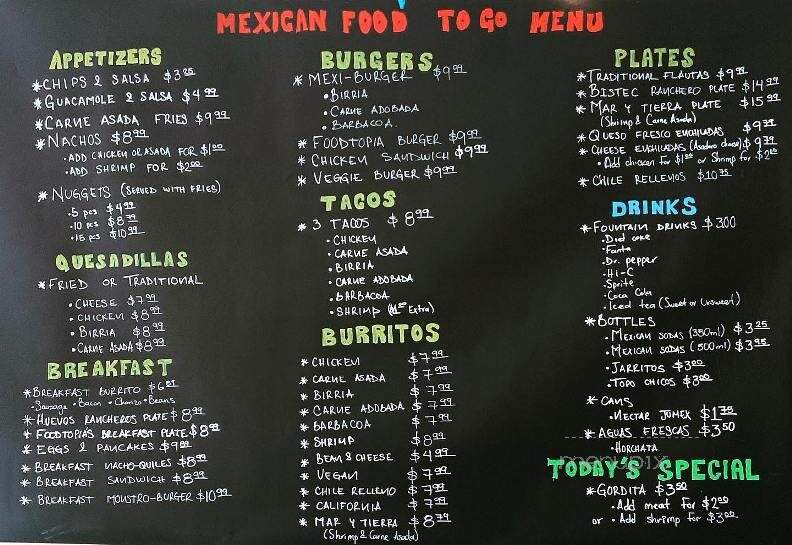 MEXICAN FOOD TO GO MENU
APPETIZERS
* CHIPS & SALSA $3.25
* GUACAMOLE & SALSA $4.99
* CARNE ASADA FRIES $9.99
* NACHOS $8.99
• ADD CHICKEN OR ASADA FOR $1.00
• ADD SHRIMP FOR $2.00
* NUGGETS (SERVED WITH FRIES)
• 5 pcs $4.99
• 10 pcs $8.79
• 15 pcs $10.99
QUESADILLAS
* FRIED OR TRADITIONAL
• CHEESE $7.99
• CHICKEN $8.99
• BIRRIA $8.99
• CARNE ASADA $8.99
BREAKFAST
* BREAKFAST BURRITO
• Sausage • Bacon • Chorizo • Beans
* HUEVOS RANCHEROS PLATE $8.99
* FOODTOPIA'S BREAKFAST PLATE $8.99
* EGGS & PANCAKES $9.99
* BREAKFAST NACHO-QUILES $8.99
* BREAKFAST SANDWICH $8.99
* BREAKFAST MONSTRO-BURGER $10.99
BURGERS
* MEXI-BURGER $9.99
• BIRRIA
• CARNE ADOBADA
• BARBACOA
* FOODTOPIA BURGER $9.99
* CHICKEN SANDWICH $9.99
* VEGGIE BURGER $9.99
TACOS
* 3 TACOS $8.99
• CHICKEN
• CARNE ASADA
• BIRRIA
• CARNE ADOBADA
• BARBACOA
• SHRIMP (Extra)
BURRITOS
* CHICKEN $7.99
* CARNE ASADA $7.99
* BIRRIA $7.99
* CARNE ADOBADA $7.99
* BARBACOA $7.99
* SHRIMP $8.99
* BEAN & CHEESE $4.99
* VEGAN $7.99
* CHILE RELLENO $7.99
* CALIFORNIA $7.99
* MAR Y TIERRA $8.79
(Shrimp & Carne Asada)
PLATES
* TRADITIONAL FLAUTAS $9.99
* BISTEC RANCHERO PLATE $14.99
* MAR Y TIERRA PLATE $15.99
(Shrimp & Carne Asada)
* QUESO FRESCO ENCHILADAS $9.79
* CHEESE ENCHILADAS (Asadero cheese) $9.79
• Add chicken for $1.50 or Shrimp for
* CHILE RELLENOS $10.75
DRINKS
* FOUNTAIN DRINKS $3.00
• Diet coke
• Fanta
• Dr. pepper
• Hi-C
• Sprite
• Coca Cola
• Iced tea (Sweet or Unsweet)
* BOTTLES
• MEXICAN SODAS (350ml) $3.25
• MEXICAN SODAS (500ml) $3.95
• JARRITOS $3.00
• TOPO CHICOS $3.00
* CANS
• NECTAR JUMEX $1.75
* AGUAS FRESCAS $3.50
• HORCHATA
menupix
TODAY'S SPECIAL
* GORDITA $3.50
• Add meat for $2.00
or • Add shrimp for $3.00